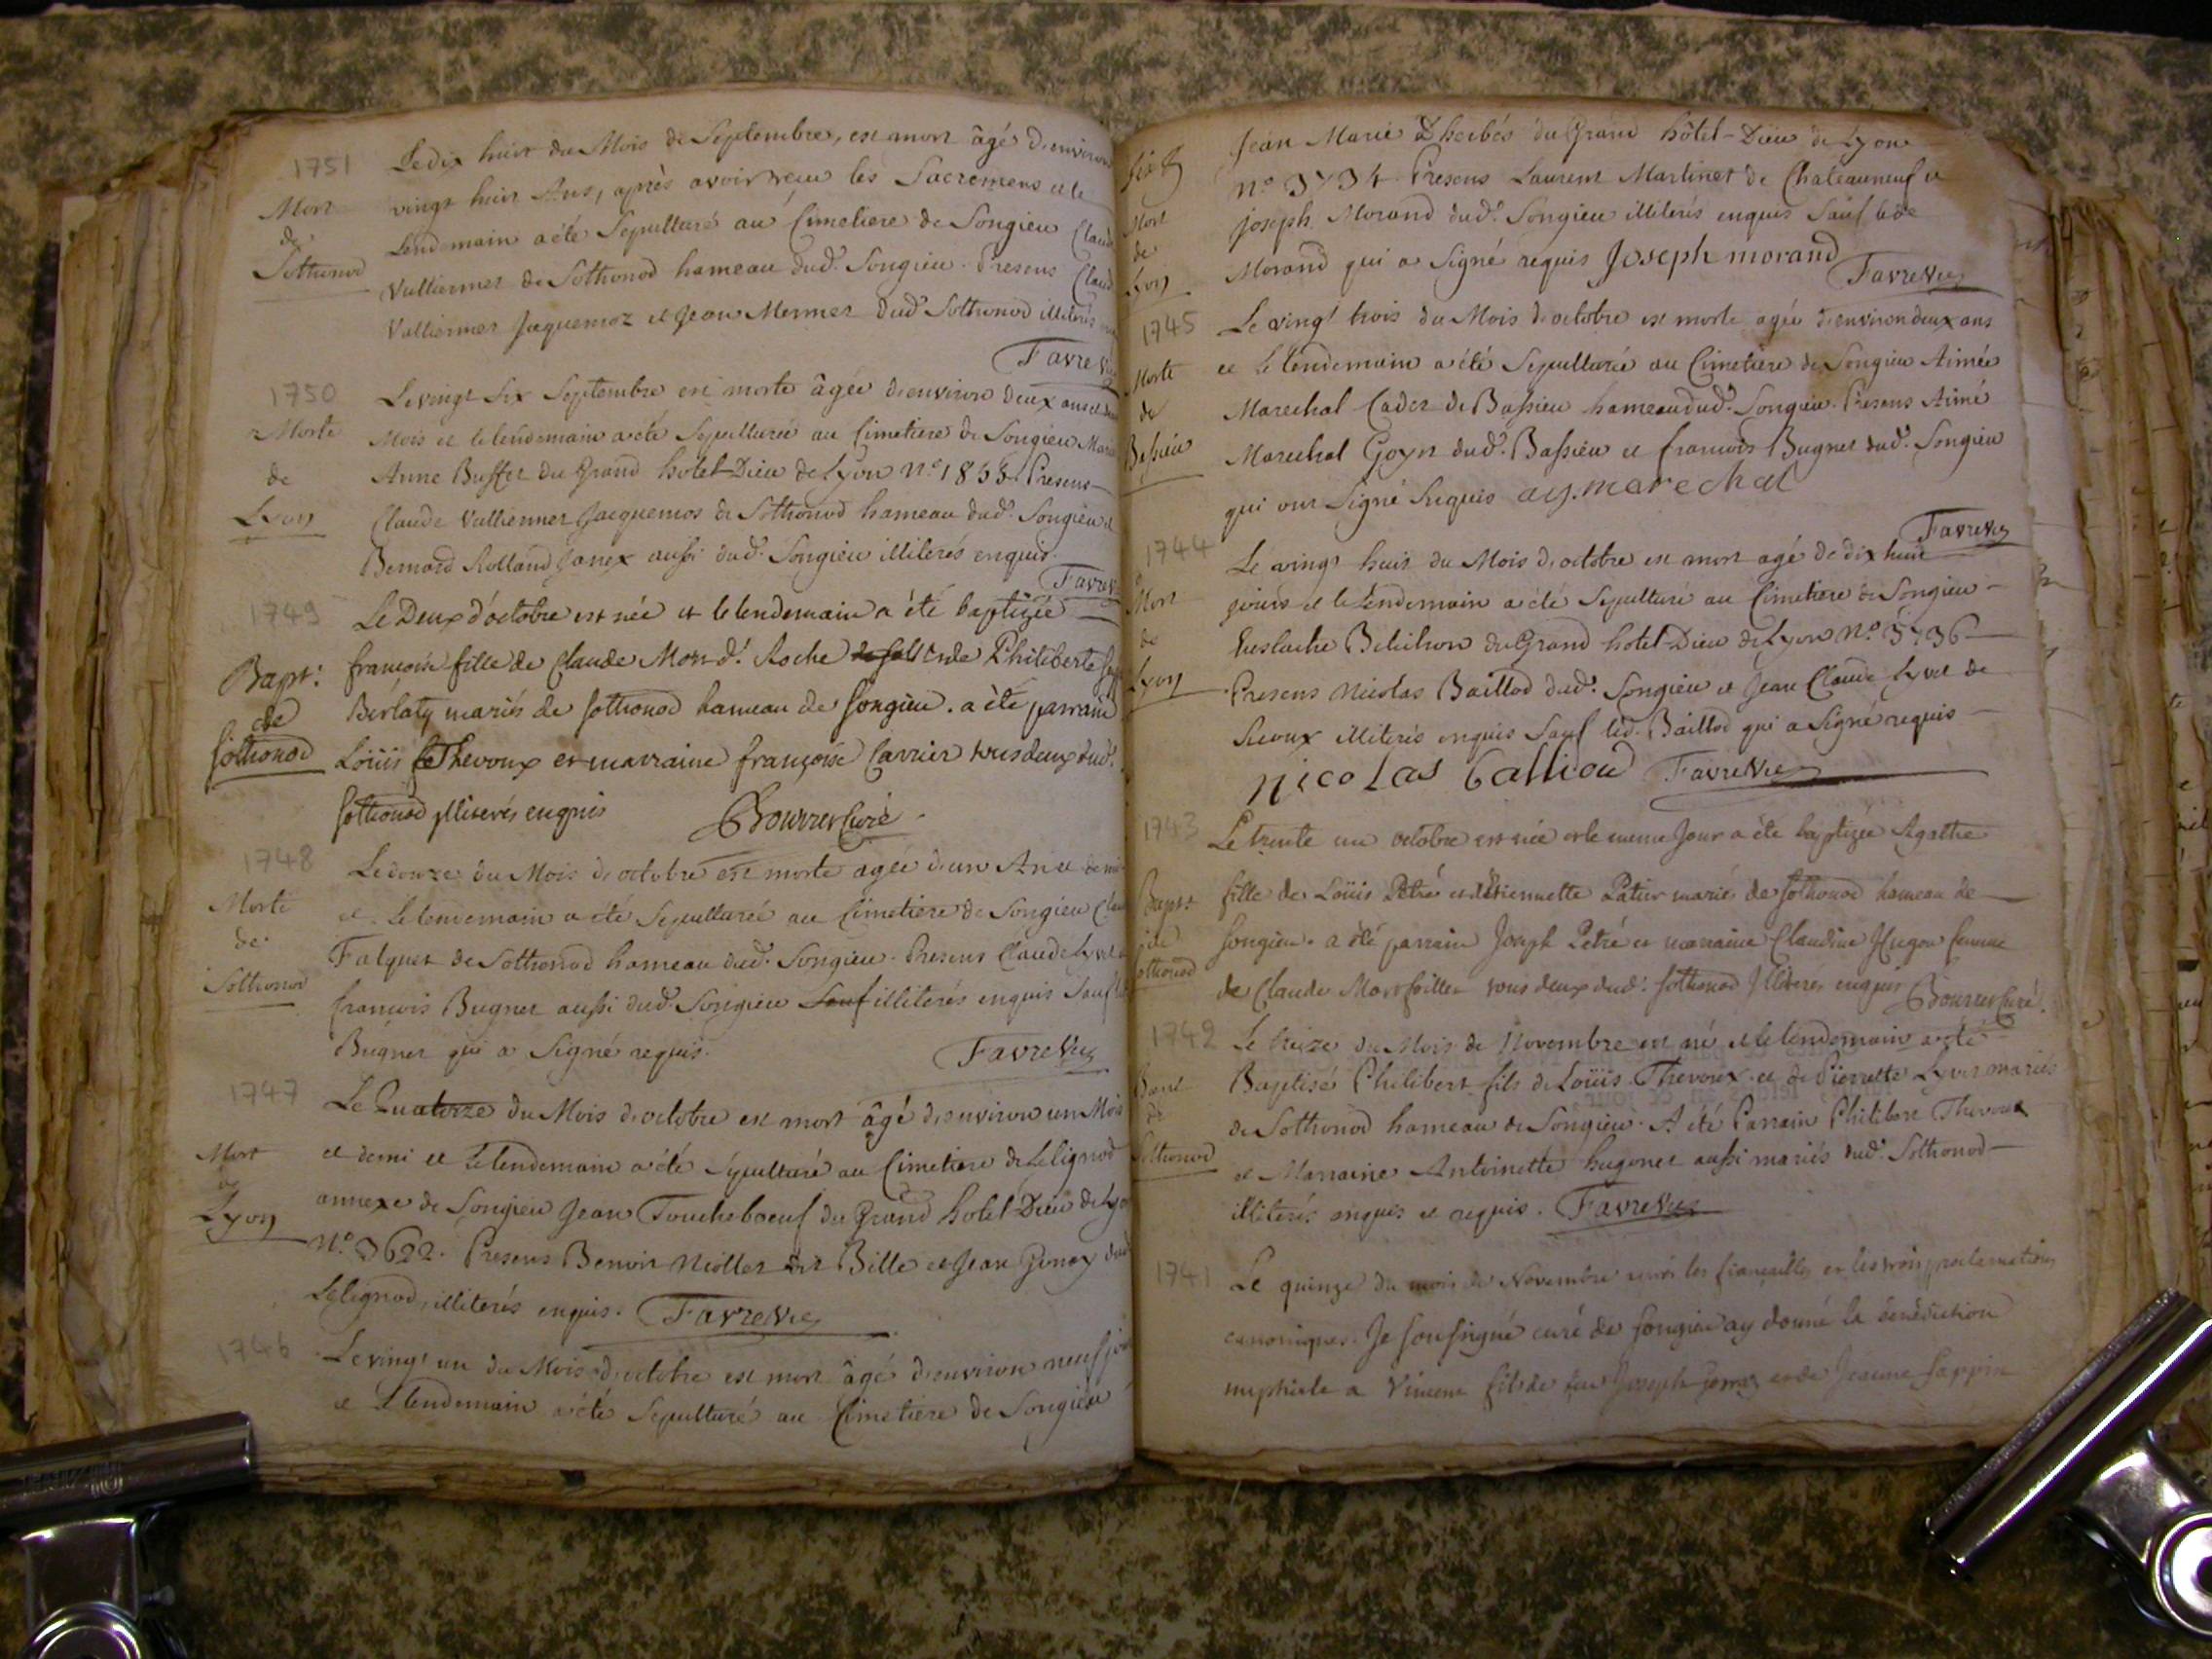 1751
Le dix huit du Mois de Septembre, est mort âgé d'environ
Mort
vingt huit Ans, après avoir reçu les Sacremens et le
de
Lendemain a été Sepulturé au Cimetiere de Songieu Claude
Sothonod
Vulliermet de Sothonod hameau dud. Songieu. Presens Claude
Vulliermet Jaquemoz et Jean Mermet dud. Sothonod illiterés
Favre Vic
1750
Le vingt Six Septembre est morte âgée d'environ deux ans et
Morte
Mois et le lendemain a été Sepulturée au Cimetiere de Songieu Marie
de
Anne Buffet du Grand hotel-Dieu de Lyon n.º 1833. Presens
Lyon
Claude Vulliermet Jacquemos de Sothonod hameau dud. Songieu et
Bernard Rolland Janex aussi dud. Songieu illiterés enquis.
Favre Vic
1749
Le Deux d'octobre est née et le lendemain a été baptizée
Bapt.
françoise fille de Claude Mon d. Roche et de Philiberte
de
Berlaty mariés de Sothonod hameau de Songieu. a été parrain
Sothonod
Loüis Thevoux et marraine françoise Carrier tous deux dud.
Sothonod illiterés enquis Bourret Curé
1748
Le douze du Mois d'octobre est morte agée d'un An et demi
Morte
et le lendemain a été Sepulturée au Cimetiere de Songieu
de
Falquet de Sothonod hameau dud. Songieu. Presens Claude Lyvet
Sothonod
francois Bugnet aussi dud. Songieu Sauf illiterés enquis Sauf
Bugnet qui a Signé requis.
Favre Vic
1747
Le Quatorze du Mois d'octobre est mort âgé d'environ un Mois
Mort
et demi et le lendemain a été Sepulturé au Cimetiere de Lelignod
de
annexe de Songieu Jean Toucheboeuf du Grand hotel-Dieu de Lyon
Lyon
n.º 3622. Presens Benoit Miollet dit Bille et Jean Gonex dud.
Lelignod, illiterés enquis. Favre Vic
1746
Le vingt un du Mois d'octobre est mort âgé d'environ neuf jours
et le lendemain a été Sepulturé au Cimetiere de Songieu
Jean Marie Dherbés du Grand hôtel-Dieu de Lyon
n.º 3734. Presens Laurent Martinet de Chateauneuf et
Mort
joseph Morand dud. Songieu illiterés enquis Sauf led.
de
Morand qui a Signé requis Joseph morand
Lyon
Favre Vic
1745
Le vingt trois du Mois d'octobre est morte agée d'environ deux ans
Morte
et le lendemain a été Sepulturée au Cimetiere de Songieu Aimée
de
Marechal Cadet de Bassieu hameau dud. Songieu. Presens Aimé
Bassieu
Marechal Goyn dud. Bassieu et francois Bugnet dud. Songieu
qui ont Signé requis ay.marechal
Favre Vic
1744
Le vingt huit du Mois d'octobre est mort agé de dix huit
Mort
jours et le lendemain a été Sepulturé au Cimetiere de Songieu
de
Eustache du Grand hotel-Dieu de Lyon n.º 3736
Lyon
Presens Nicolas Baillod dud. Songieu et Jean Claude Lyvet de
illiterés enquis Sauf led. Baillod qui a Signé requis
nicolas balliod Favre Vic
1743
Le trente un octobre est née et le meme Jour a été baptizée Agathe
Bapt.
fille de Loüis Petré et d'Etiennette Patur mariés de Sothonod hameau de
de
Songieu. a été parrain Joseph Petré et marraine Claudine Hugon femme
Sothonod
de Claude tous deux dud. Sothonod illiterés enquis Bourret Curé
1742
Le treize du Mois de Novembre est né et le lendemain a été
Bapt
Baptisé Philibert fils de Loüis Thevoux et de Pierrette Lyvet mariés
de
de Sothonod hameau de Songieu. A été Parrain Philibert Thevoux
Sothonod
et Marraine Antoinette hugonet aussi mariés dud. Sothonod
illiterés enquis et requis. Favre Vic
1741
Le quinze du mois de Novembre après les fiancailles et les trois proclamations
canoniques. Je Soussigné curé de Songieu ay donné la bénédiction
nuptiale a Vincent fils de feu Joseph et de Jeanne Sappin